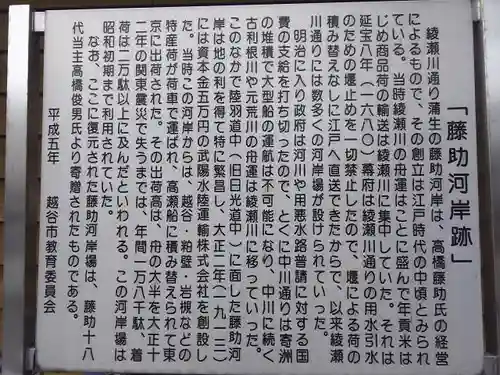 「藤助河岸跡」
綾瀬川通り蒲生の藤助河岸は、高橋藤助氏の経営
によるもので、その創立は江戸時代の中頃とみられ
ている。当時綾瀬川の舟運はことに盛んで年貢米は
じめ商品荷の輸送は綾瀬川に集中していた。それは
延宝八年（一六八〇）幕府は綾瀬川通りの用水引水
のための堰止めを一切禁止したので、堰による荷の
積み替えなしに江戸へ直送できたからで、以来綾瀬
川通りには数多くの河岸場が設けられていった。
明治に入り政府は河川や用悪水路普請に対する国
費の支給を打ち切ったので、とくに中川通りは寄洲
の堆積で大型船の運航は不可能になり、中川に続く
古利根川や元荒川の舟運は綾瀬川に移っていった。
このなかで陸羽道中（旧日光道中）に面した藤助河
岸は地の利を得て特に繁昌し、大正二年（一九一三）
には資本金五万円の武陽水陸運輸株式会社を創設し
た。当時この河岸からは、越谷・粕壁・岩槻などの
特産荷が荷車で運ばれ、高瀬船に積み替えられて東
京に出荷された。その出荷高は、舟の大半を大正十
二年の関東震災で失うまでは、年間一万八千駄、着
荷は二万駄以上に及んだといわれる。この河岸場は
昭和初期まで利用されていた。
なお、ここに復元された藤助河岸場は、藤助十八
代当主高橋俊男氏より寄贈されたものである。
平成五年　越谷市教育委員会